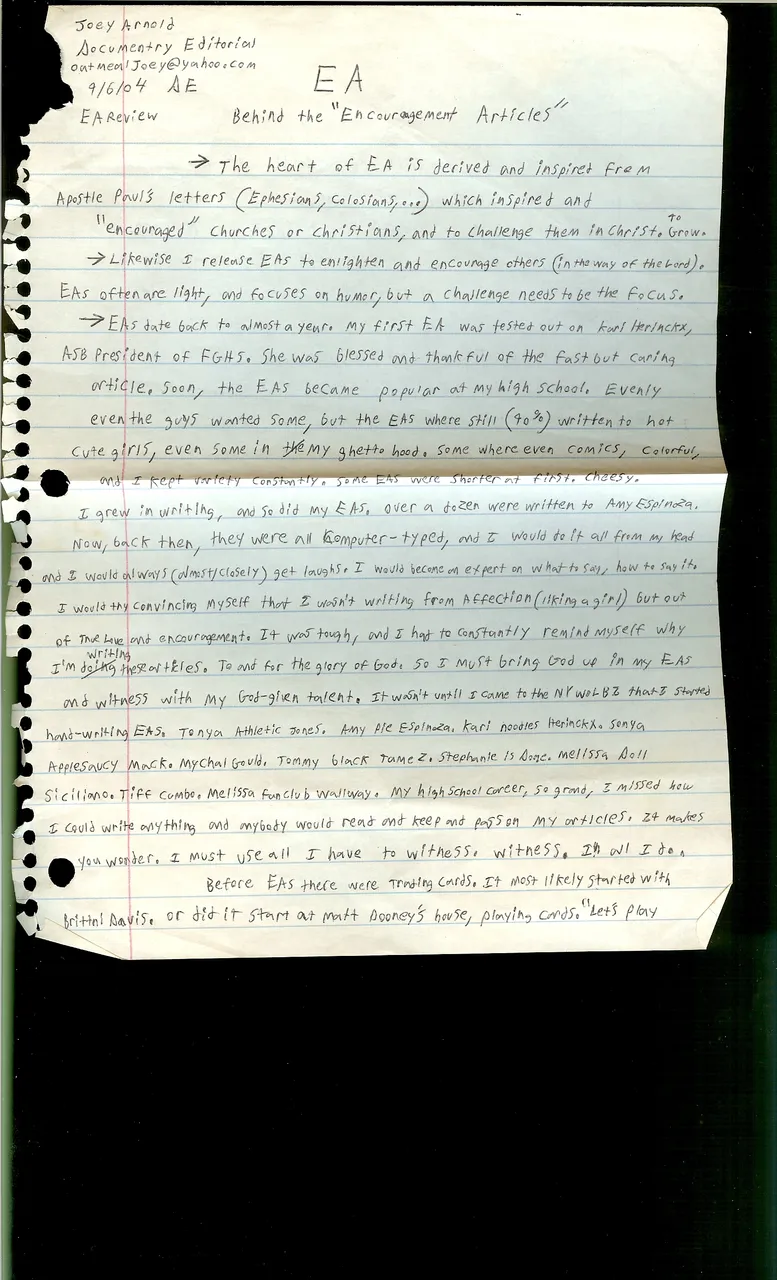 Joey Arnold
Documentry Editorial
oatmealJoey@yahoo.com
9/6/04 AE
EA
EA Review
Behind the "Encouragement Articles"
→ The heart of EA is derived and inspired from
Apostle Paul's letters (Ephesians, Colosians,...) which inspired and
"encouraged" churches or christians, and to challenge them in Christ. To Grow.
→ Likewise I release EAs to enlighten and encourage others (in the way of the Lord).
EAs often are light, and focuses on humor, but a challenge needs to be the focus.
→ EAs date back to almost a year. My first EA was tested out on Kari Herinckx,
ASB President of FGHS. She was blessed and thankful of the fast but caring
article. Soon, the EAs became popular at my high school. Evenly
even the guys wanted some, but the EAs where still (90%) written to hot
cute girls, even some in the my ghetto hood. Some where even comics, colorful,
and I kept variety constantly. Some EAs were shorter at first. Cheesy.
I grew in writing, and so did my EAs. Over a dozen were written to Amy Espinoza.
Now, back then, they were all computer-typed, and I would do it all from my head
and I would always (almost/closely) get laughs. I would become an expert on what to say, how to say it.
I would try convincing myself that I wasn't writing from Affection (liking a girl) but out
of True Love and encouragement. It was tough, and I had to constantly remind myself why
I'm doing writing these articles. To and for the glory of God. So I must bring God up in my EAs
and witness with my God-given talent. It wasn't until I came to the NYWOLBI that I started
hand-writing EAs. Tonya Athletic Jones. Amy Pie Espinoza. Kari noodles Herinckx. Sonya
Applesaucy Mack. Mychal Gould. Tommy black Tamez. Stephanie is Done. Melissa Doll
Siciliano. Tiff Combo. Melissa fanclub Wallway. My high school career, so grand, I missed how
I could write anything and anybody would read and keep and pass on my articles. It makes
you wonder. I must use all I have to witness. Witness. In all I do.
Before EAs there were Trading cards. It most likely started with
Brittni Davis. Or did it start at Matt Dooney's house, playing cards. "Let's play